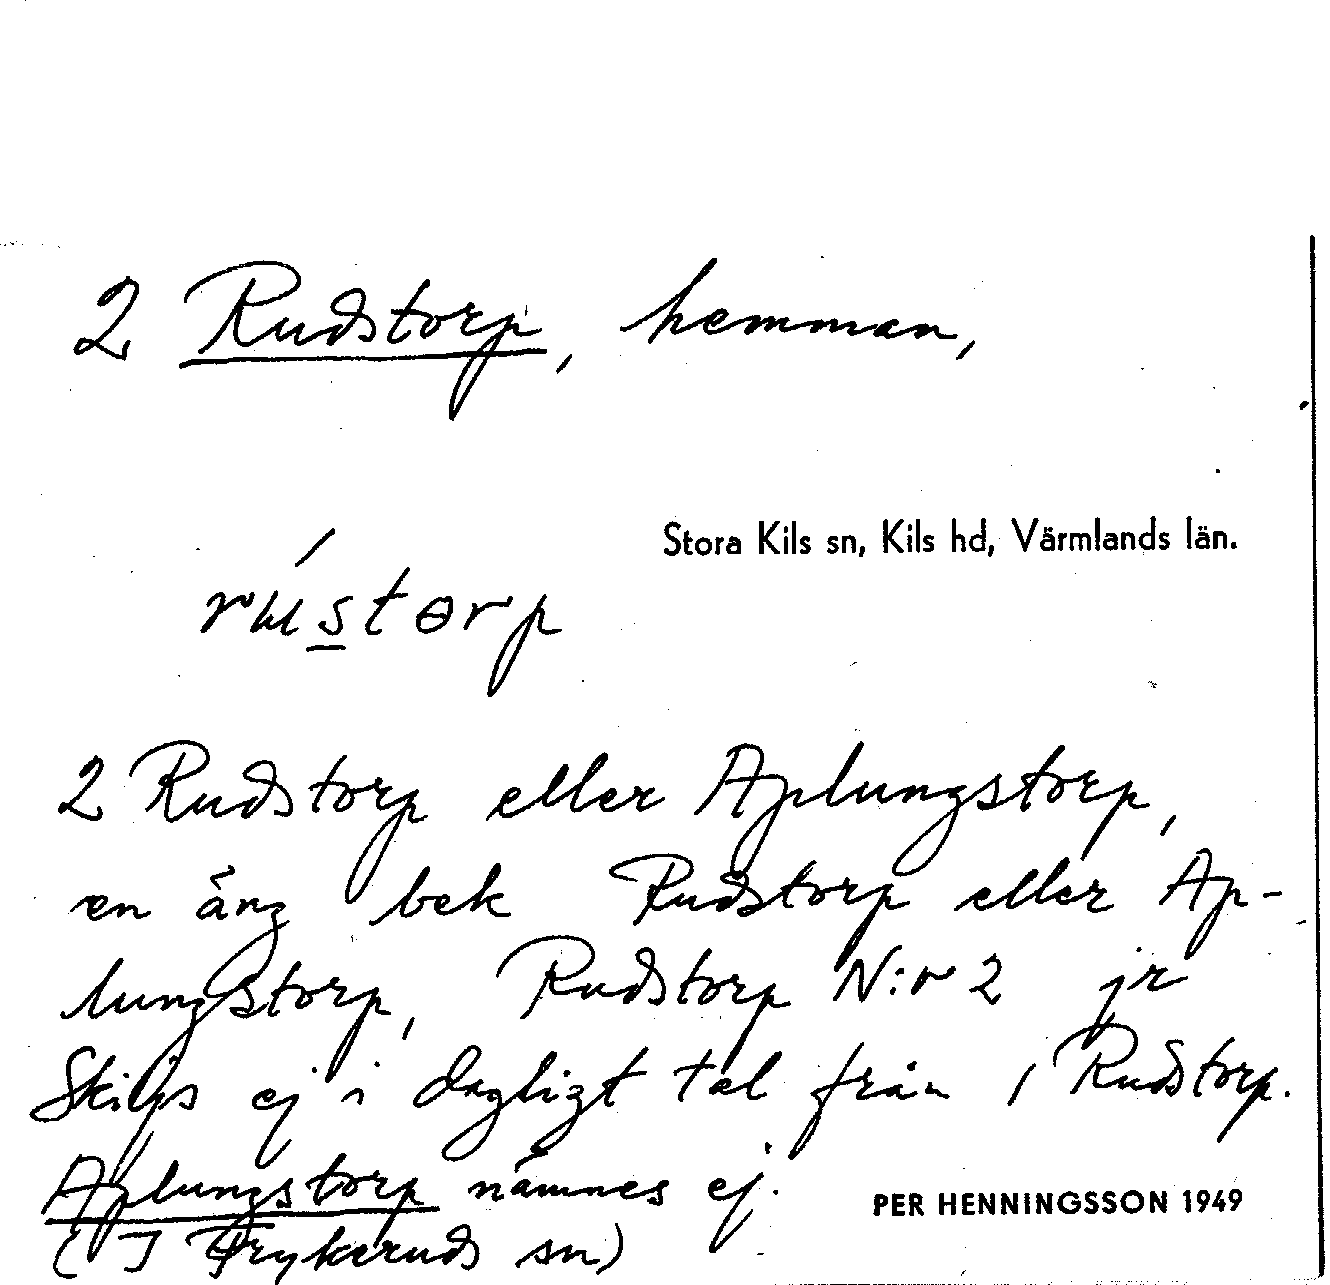 2 Rudstorp, hemman,
Stora Kils sn, Kils hd, Värmlands län.
rústɵrp
2 Rudstorp eller Aplungstorp,
en äng bek Rudstorp eller Ap-
lungstorp, Rudstorp N:o 2 jr
Skiljs ej i dagligt tal från 1 Rudstorp.
Aplungstorp nämnes ej.
(I Frykeruds sn)
PER HENNINGSSON 1949